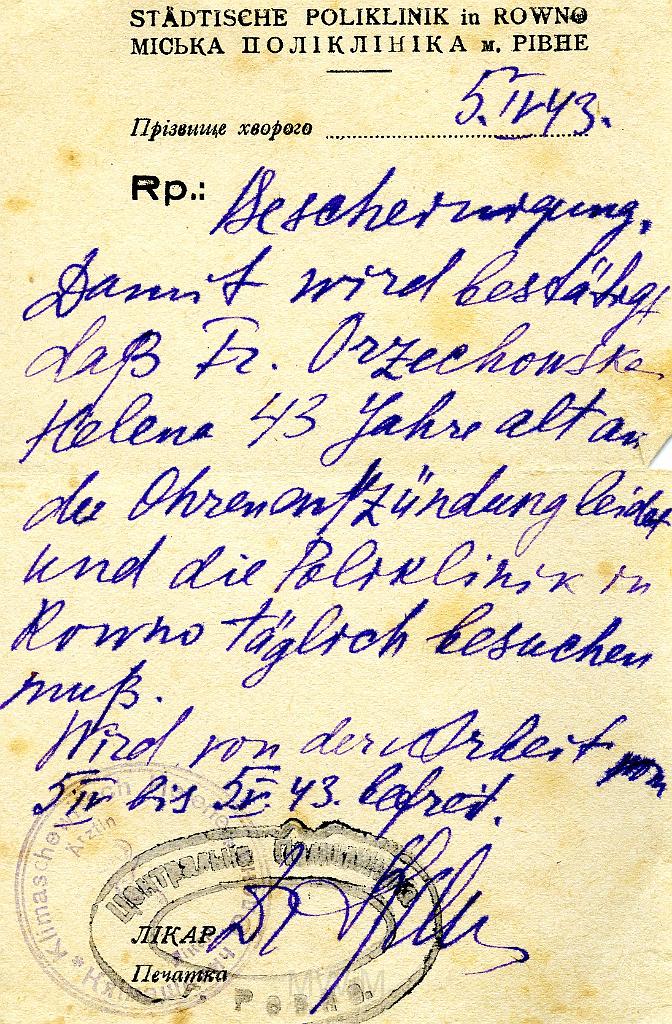 STÄDTISCHE POLIKLINIK in ROWNO
МІСЬКА ПОЛІКЛІНІКА м. РІВНЕ
5.IV.43.
Прізвище хворого
Rp.: Bescheinigung.
Damit wird bestätigt
daß Fr. Orzechowska
Helena 43 Jahre alt an
der Ohrenentzündung leidet
und die Poliklinik in
Rowno täglich besuchen
muß.
Wird von der Arbeit vom
5 IV bis 5.V.43. befreit.
Klimasche
Ärztin
Центральна
ЛІКАР Dr
Печатка
Рівне.